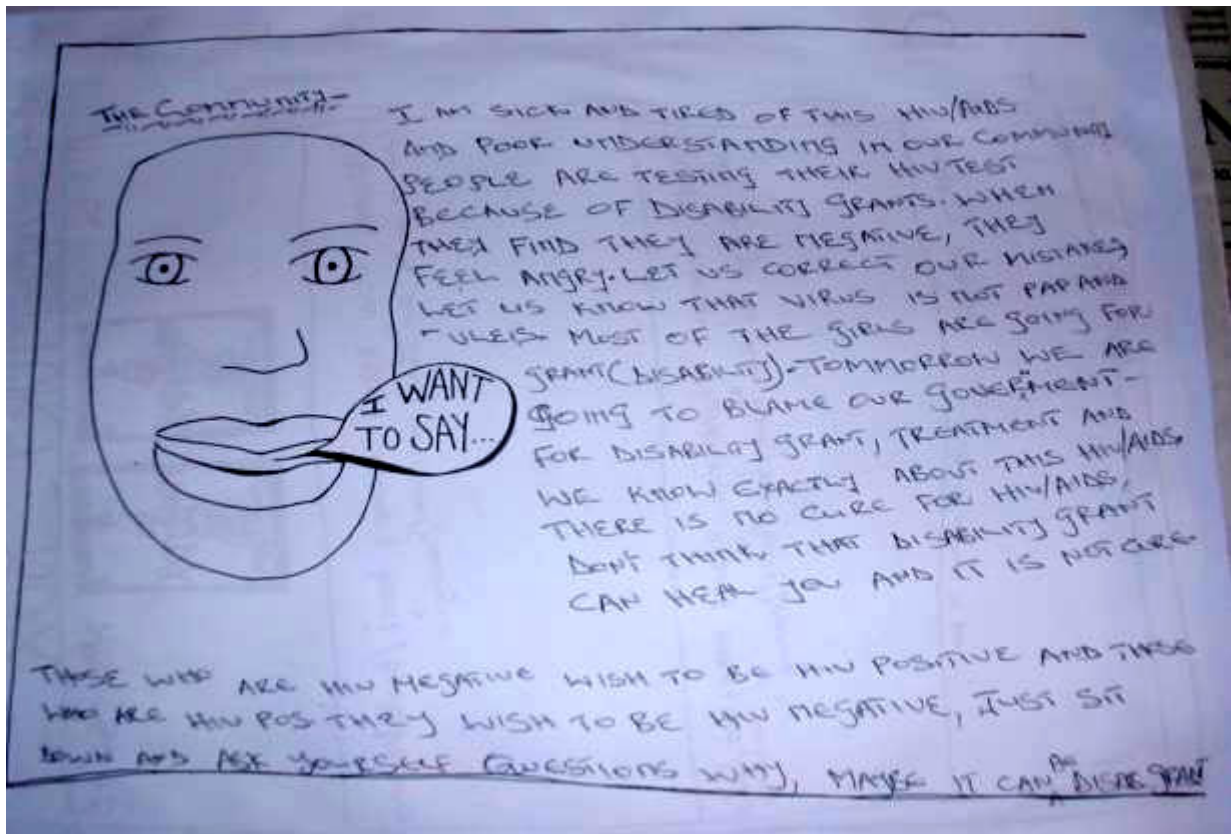 THE COMMUNITY-
I AM SICK AND TIRED OF THIS HIV/AIDS
AND POOR UNDERSTANDING IN OUR COMMUNITY
PEOPLE ARE TESTING THEIR HIV TEST
BECAUSE OF DISABILITY GRANTS. WHEN
THEY FIND THEY ARE NEGATIVE, THEY
FEEL ANGRY. LET US CORRECT OUR MISTAKES,
LET US KNOW THAT VIRUS IS NOT PAP AND
MOST OF THE GIRLS ARE GOING FOR
GRANT (DISABILITY). TOMMORROW WE ARE
GOING TO BLAME OUR GOVERMENT-
FOR DISABILITY GRANT, TREATMENT AND
WE KNOW EXACTLY ABOUT THIS HIV/AIDS.
THERE IS NO CURE FOR HIV/AIDS,
DON'T THINK THAT DISABILITY GRANT
CAN HEAL YOU AND IT IS NOT CURE
I WANT
TO SAY...
THOSE WHO ARE HIV NEGATIVE WISH TO BE HIV POSITIVE AND THOSE
WHO ARE HIV POS THEY WISH TO BE HIV NEGATIVE, JUST SIT
DOWN AND ASK YOURSELF QUESTIONS WHY, MAYBE IT CAN BE DISAB GRANT